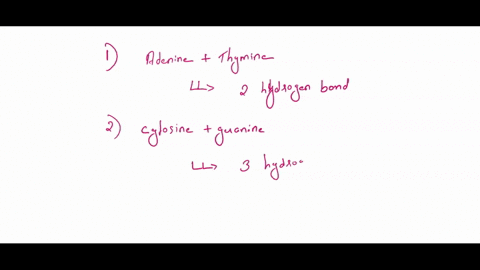 1) Adenine + Thymine
↳ 2 hydrogen bond
2) cytosine + guanine
↳ 3 hydro